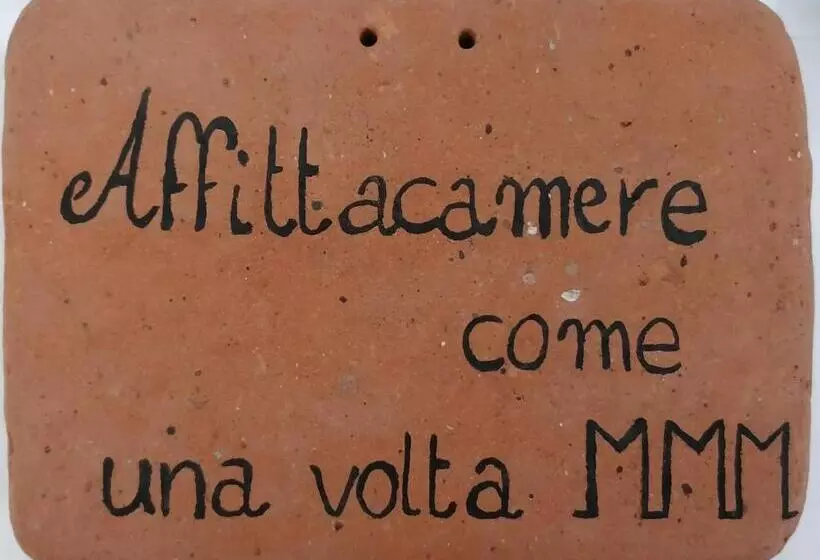 Affittacamere
come
una volta MMM